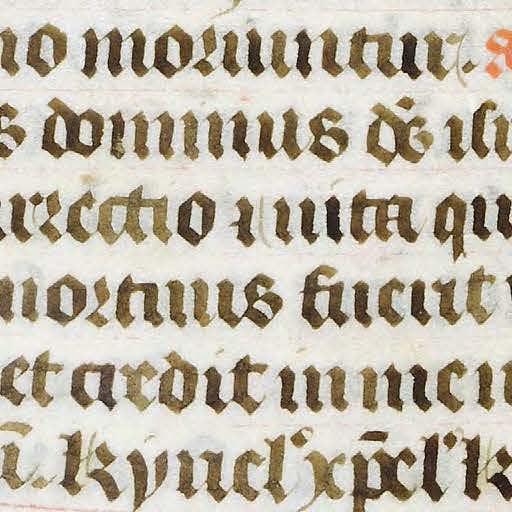 no moriuntur. a
s dominus dēs isti
urrectio ⁊ uita qui
mortuus fuerit u
et credit in me n
ū. kyriel' xp̄el' k